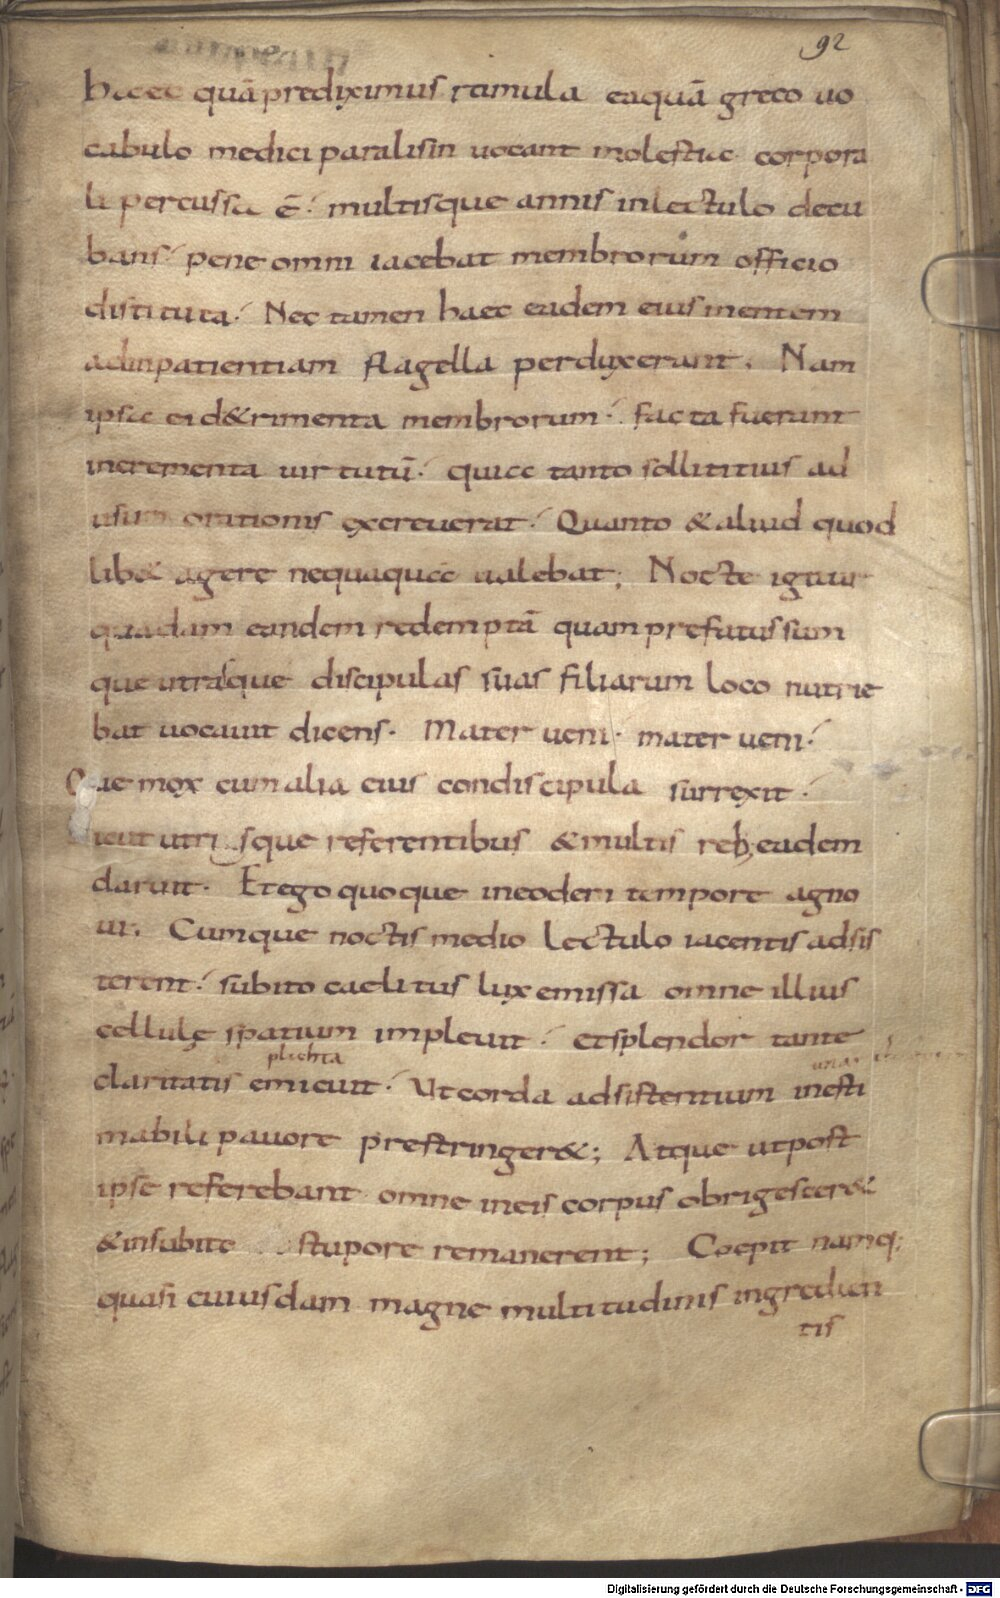 92
haec quā prediximus romula eaquā greco uo
cabulo medici paralisin uocant molestiae corpora
li percussa ē. multisque annis inlectulo decu
bans pene omni iacebat membrorum officio
distituta. Nec tamen haec eadem eius mentem
adinpatientiam flagella perduxerant. Nam
ipsa ei d&rimenta membrorum facta fuerunt
incrementa uirtutū. quiac tanto sollititius ad
usum orationis exercuerat. Quanto & aliud quod
lib& agere nequaquaē ualebat; Nocte igitur
quadam eandem redemptā quam prefatus sum
que utrasque discipulas suas filiarum loco nutrie
bat uocauit dicens. Mater ueni. mater ueni.
Que mox cum alia eius condiscipula surrexit.
sicut utrisque referentibus & multis reb; eadem
daruit. Et ego quoque ineodem tempore agno
ui. Cumque noctis medio lectulo iacentis adsis
terent. subito caelitus lux emissa omne illius
cellulę spatium impleuit. et splendor tante
claritatis emicuit. Ut corda adsistentium inesti
mabili pauore prestringer&; Atque utpost
ipse referebant omne ineis corpus obrigescer&
& insubite stupore remanerent; Coepit namq;
quasi cuiusdam magne multitudinis ingredien
tis
Digitalisierung gefördert durch die Deutsche Forschungsgemeinschaft - DFG